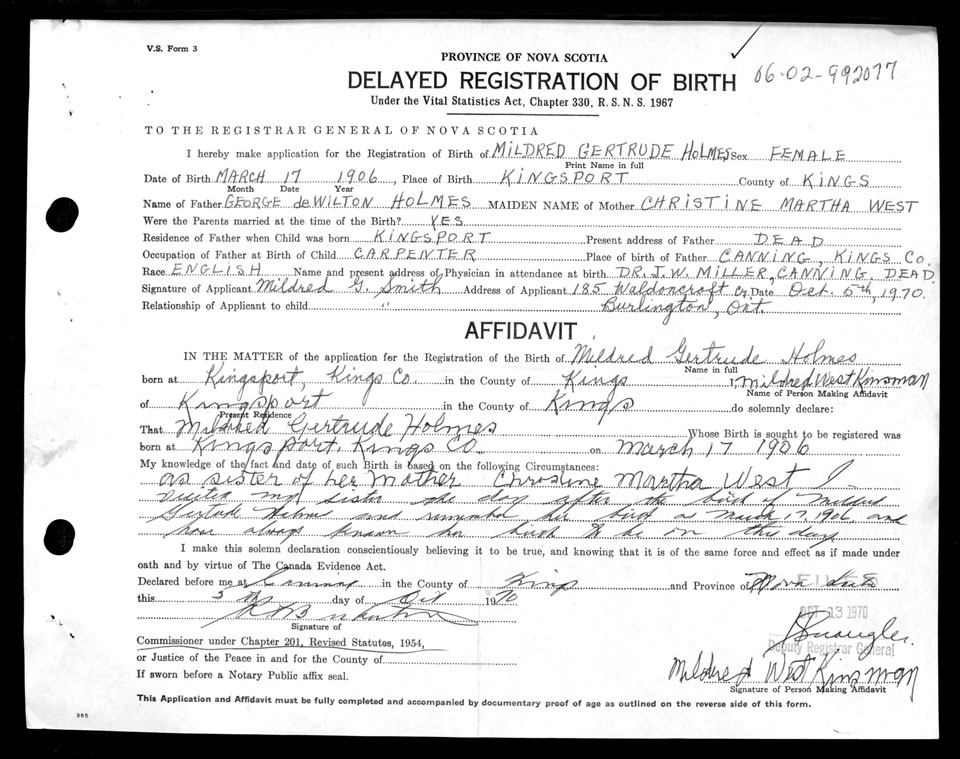 V.S. Form 3
PROVINCE OF NOVA SCOTIA
DELAYED REGISTRATION OF BIRTH 06-02-992077
Under the Vital Statistics Act, Chapter 330, R.S.N.S. 1967
TO THE REGISTRAR GENERAL OF NOVA SCOTIA
I hereby make application for the Registration of Birth of MILDRED GERTRUDE HOLMES Sex FEMALE
Print Name in full
Date of Birth MARCH 17 1906, Place of Birth KINGSPORT County of KINGS
Month Date Year
Name of Father GEORGE deWILTON HOLMES MAIDEN NAME of Mother CHRISTINE MARTHA WEST
Were the Parents married at the time of the Birth? YES
Residence of Father when Child was born KINGSPORT Present address of Father DEAD
Occupation of Father at Birth of Child CARPENTER Place of birth of Father CANNING, KINGS CO.
Race ENGLISH Name and present address of Physician in attendance at birth DR. J. W. MILLER, CANNING, DEAD
Signature of Applicant Mildred G. Smith Address of Applicant 185 Waldoncroft Cr. Date Oct. 5th, 1970.
Relationship of Applicant to child " Burlington, Ont.
AFFIDAVIT
IN THE MATTER of the application for the Registration of the Birth of Mildred Gertrude Holmes
Name in full
born at Kingsport, Kings Co. in the County of Kings I, Mildred West Kinsman
Name of Person Making Affidavit
of Kingsport in the County of Kings do solemnly declare:
Present Residence
That Mildred Gertrude Holmes Whose Birth is sought to be registered was
born at Kingsport, Kings Co. on March 17 1906
My knowledge of the fact and date of such Birth is based on the following Circumstances:
as sister of her mother Christine Martha West I
visited my sister the day after the birth of Mildred
Gertrude Holmes and remember her birth as March 17, 1906, and
have always known her birth to be on this day
I make this solemn declaration conscientiously believing it to be true, and knowing that it is of the same force and effect as if made under
oath and by virtue of The Canada Evidence Act.
Declared before me at Canning in the County of Kings and Province of Nova Scotia
this 5th day of Oct 1970
FILED
OCT 13 1970
Signature of
Deputy Registrar General
Commissioner under Chapter 201, Revised Statutes, 1954,
or Justice of the Peace in and for the County of
Mildred West Kinsman
If sworn before a Notary Public affix seal.
Signature of Person Making Affidavit
This Application and Affidavit must be fully completed and accompanied by documentary proof of age as outlined on the reverse side of this form.
365